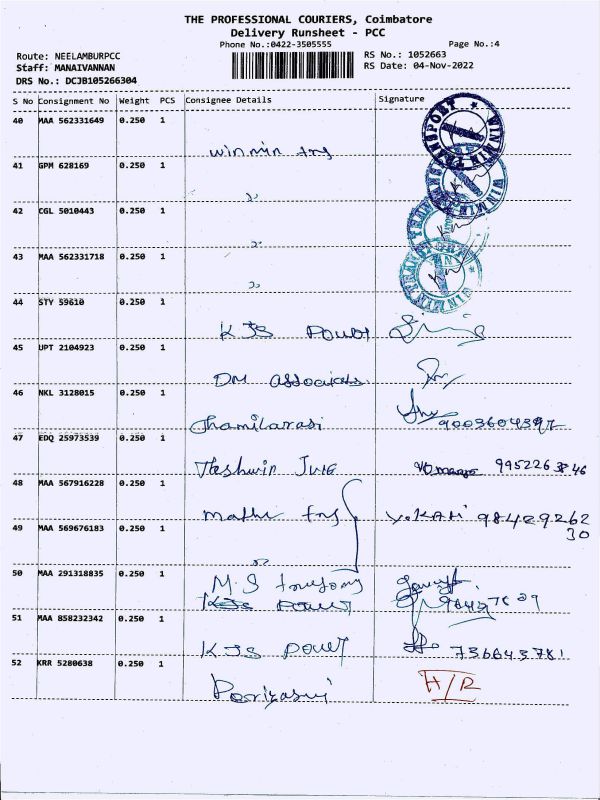 THE PROFESSIONAL COURIERS, Coimbatore
Delivery Runsheet - PCC
Phone No.:0422-3505555 Page No.:4
Route: NEELAMBURPCC RS No.: 1052663
Staff: MANAIVANNAN RS Date: 04-Nov-2022
DRS No.: DCJB105266304
S No Consignment No Weight PCS Consignee Details Signature
40 MAA 562331649 0.250 1
winmin trs WIN MIN TRANSPORT
41 GPM 628169 0.250 1
42 CGL 5010443 0.250 1
43 MAA 562331718 0.250 1
44 STY 59610 0.250 1
KJS Power
45 UPT 2104923 0.250 1
DM associates
46 NKL 3128015 0.250 1
Thamilarasi 9003604397
47 EDQ 25973539 0.250 1
995226
48 MAA 567916228 0.250 1
Mathi trs 98429262
30
49 MAA 569676183 0.250 1
50 MAA 291318835 0.250 1
M.S
KJS Power
51 MAA 858232342 0.250 1
KJS Power 736643781
52 KRR 5280638 0.250 1
H/R